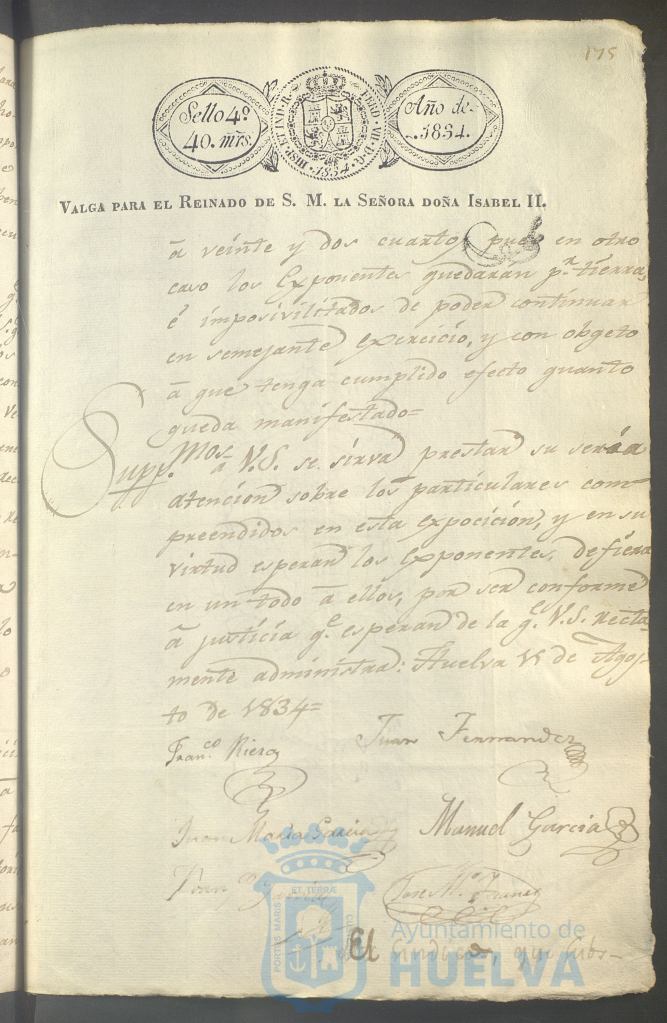 175
Sello 4º
40. mrs.
HISP. ET IND. R. FERD. VII. D. G. 1834.
Año de
1834.
VALGA PARA EL REINADO DE S. M. LA SEÑORA DOÑA ISABEL II.
à veinte y dos cuartos pues en otro
caso los Exponentes quedaran pr. tierra,
é imposivilitados de poder continuar
en semejante exercicio, y con obgeto
à que tenga cumplido efecto quanto
queda manifestado=
Suppmos. a V.S. se sirva prestar su seria
atencion sobre los particulares com-
preendidos en esta exposicion, y en su
virtud esperan los exponentes, defiera
en un todo à ellos, por ser conforme
à justicia qe. esperan de la qe. V.S. recta-
mente administra: Huelva 11 de Agos-
to de 1834=
Franco. Riera Juan Fernandez
Juan Maria Garcia Manuel Garcia
Juan Jose Ma.
El Sindico, que subs-
PORTUS MARIS ET TERRÆ CUSTODIA
Ayuntamiento de
HUELVA